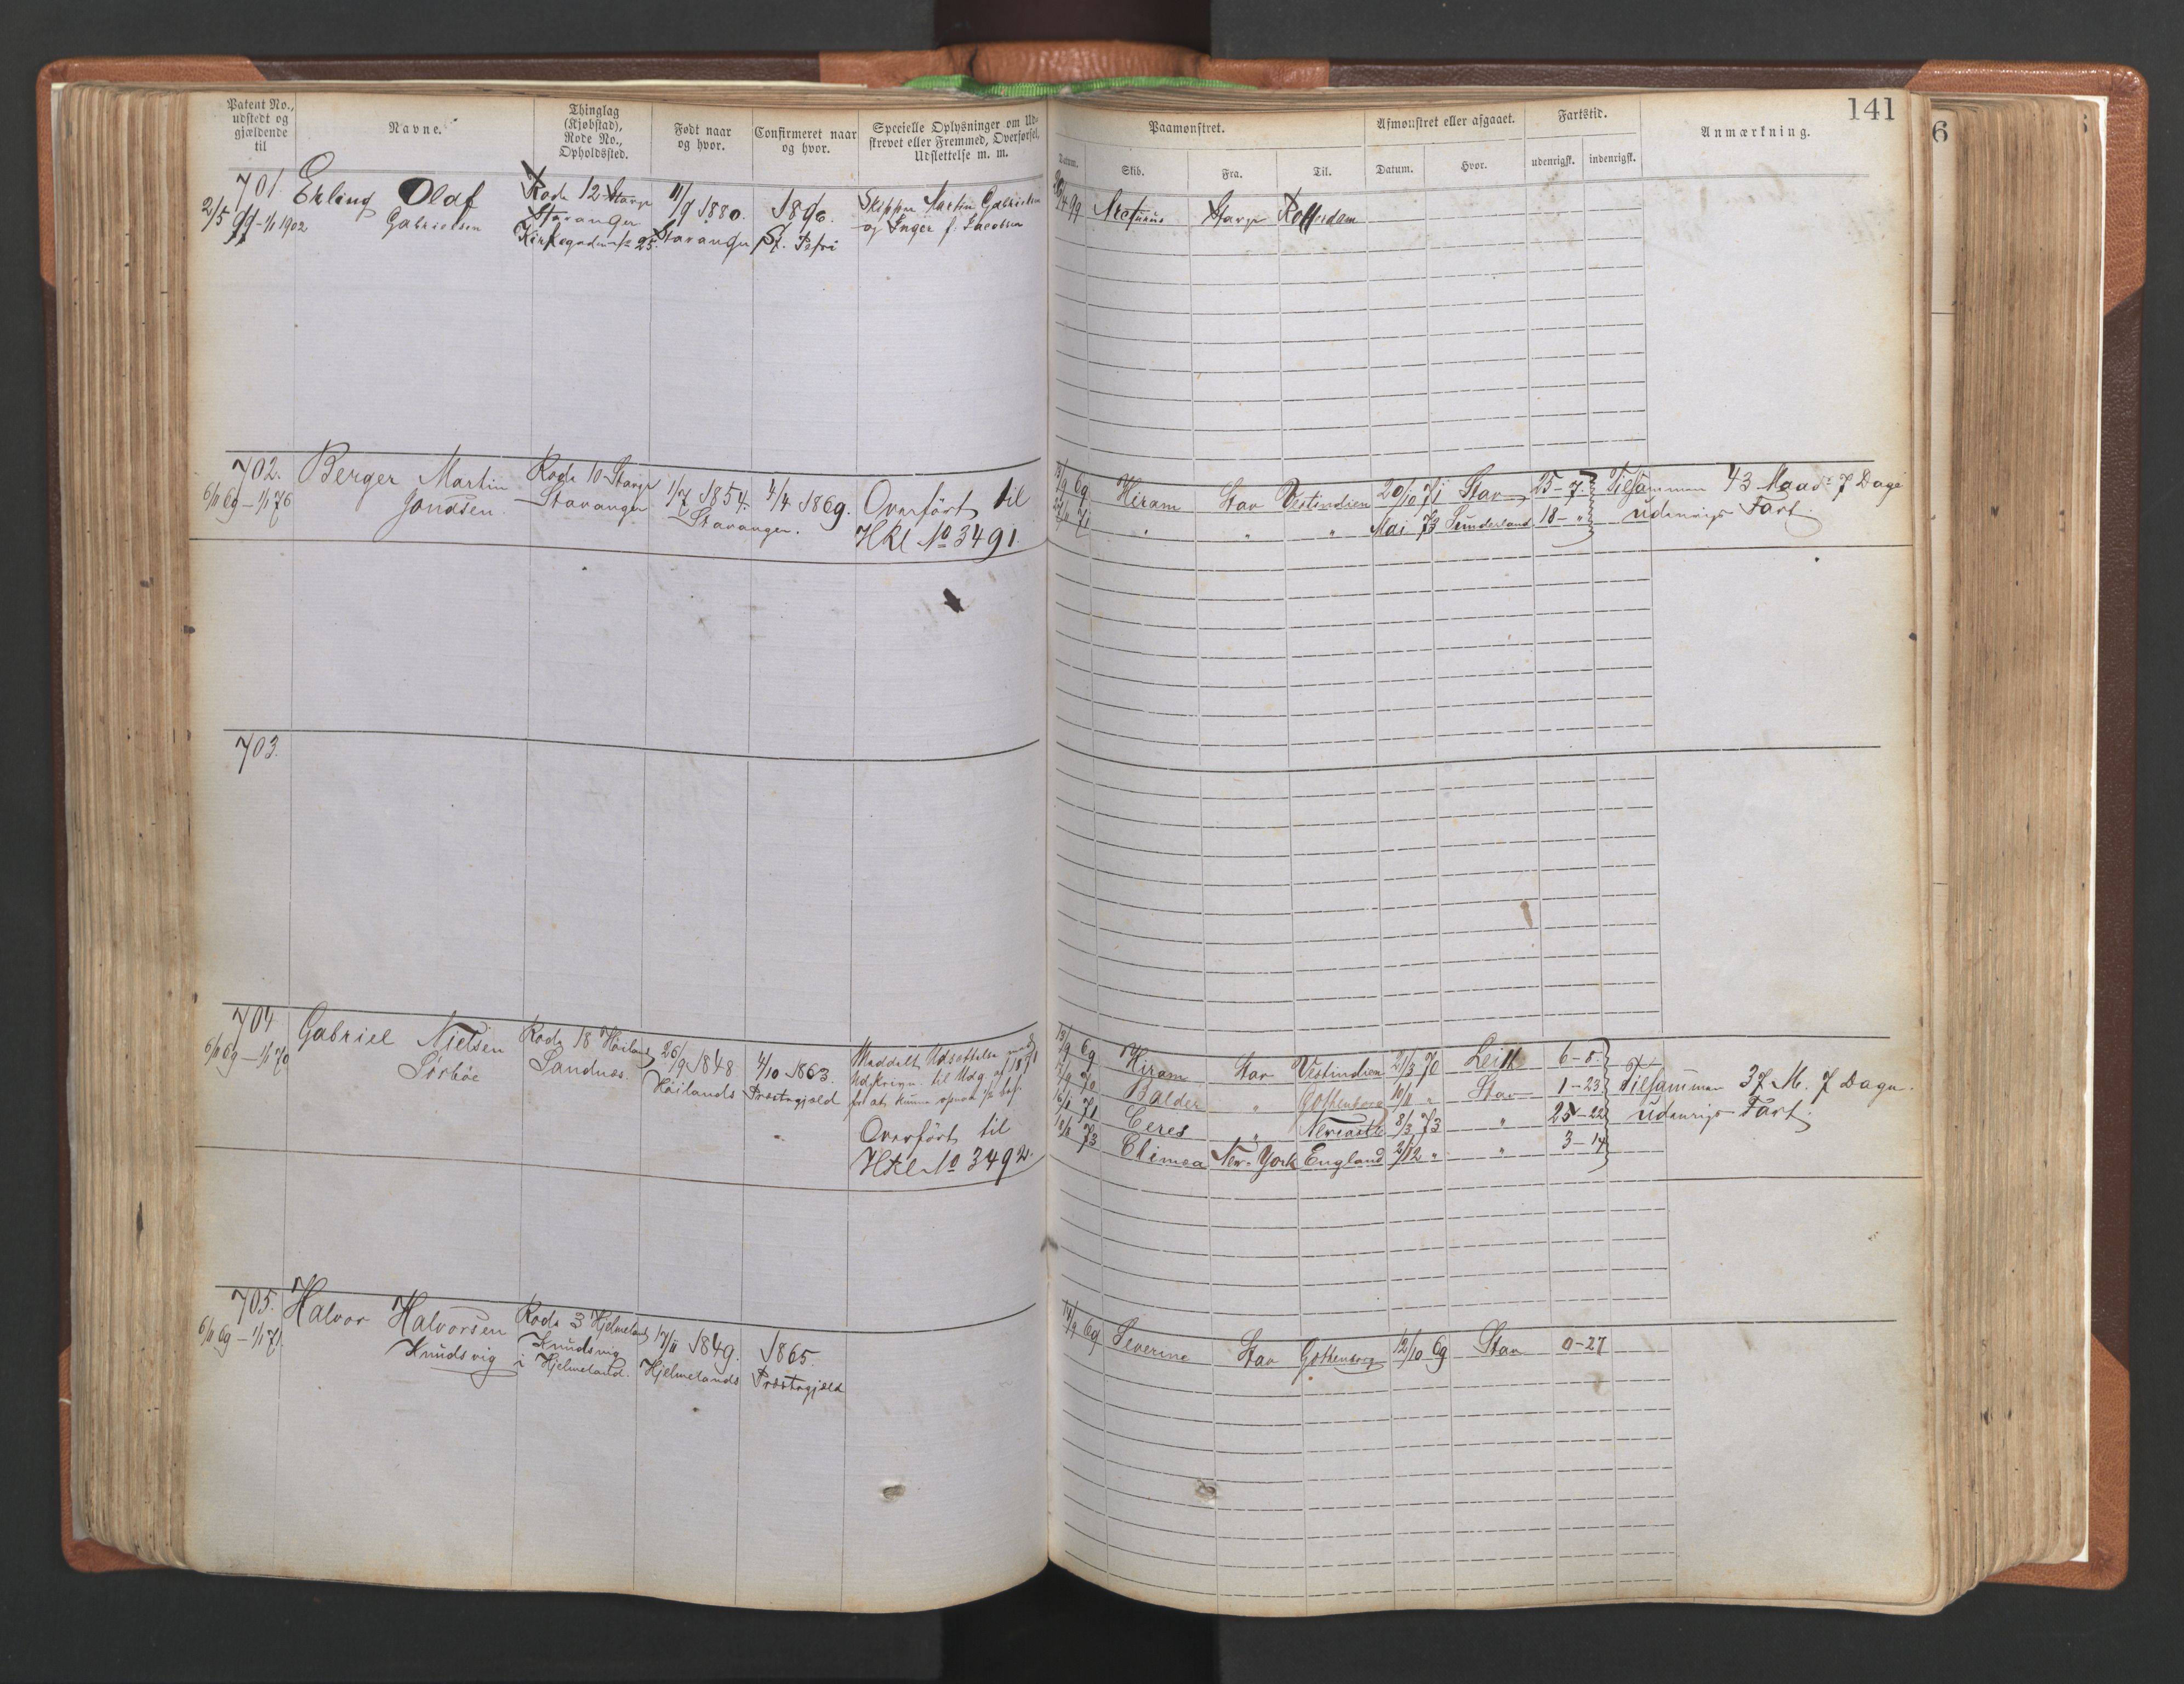 141
6
Patent No., udstedt og gjældende til
Navne.
Thinglag (Kjøbstad), Rode No., Opholdssted.
Født naar og hvor.
Confirmeret naar og hvor.
Specielle Oplysninger om Udskrevet eller Fremmed, Overførsel, Udslettelse m. m.
Paamønstret.
Datum.
Skib.
Fra.
Til.
Afmønstret eller afgaaet.
Datum.
Hvor.
Fartstid.
udenrigsk.
indenrigsk.
Anmærkning.
701.
2/5 99 - 1/1 1902
Erling Olaf
Gabrielsen
Rode 12 Stavgr
Stavanger
11/9 1880.
Stavanger
1896.
St. Petri
Skipper Martin Gabrielsen
og Inger f. Jacobsen
Arcturus Stavgr Rotterdam
702.
6/11 69 - 1/1 76
Berger Martin
Jonassen
Rode 10 Stavgr
Stavanger
1/7 1854.
Stavanger.
4/4 1869.
Overført til
Hkl No 3491.
69 Hiram Stav Vestindien 20/10 71 Stav 25 - 7 Tilsammen 43 Maad: 7 Dage
71 " " " Mai 73 Sunderland 18 - " udenrigs Fart.
703.
704
6/11 69 - 1/1 70
Gabriel Nielsen
Sørbøe
Rode 18 Høiland
Sandnæs.
26/9 1848.
Høilands
4/10 1863.
Præstegjæld
Meddelt Udsettelse med
Udskrivn. til Udg. af 1871
for at kunne
Overført til
Hkl No 3492.
13/9 69 Hiram Stav Vestindien 21/3 70 Leith 6 - 8
70 Balder " Gothenborg 10/11 " Stav 1 - 23 Tilsammen 37 M. 7 Dage.
71 Ceres " Newcastle 8/3 73 " 25 - 22 udenrigs Fart.
73 New-York England 2/12 " " 3 - 14
705.
6/11 69 - 1/1 71.
Halvor Halvorsen
Knudsvig
Rode 3 Hjelmeland
Knudsvig
i Hjelmeland.
17/11 1849.
Hjelmelands
1865.
Præstegjæld
14/9 69 Severine Stav Gothenborg 12/10 69 Stav 0 - 27